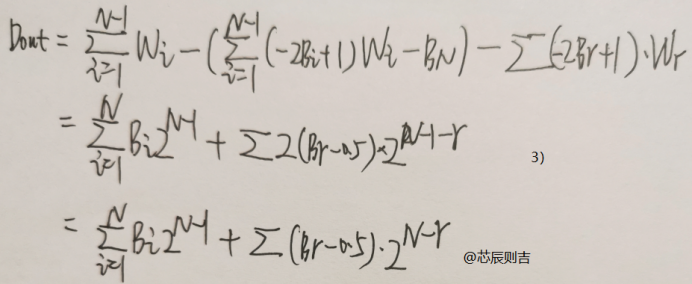 Dout = \sum_{i=1}^{N-1} W_i - (\sum_{i=1}^{N-1} (-2B_i+1) W_i - B_N) - \sum (-2B_r+1) \cdot W_r
= \sum_{i=1}^{N} B_i 2^{N-1} + \sum 2(B_r-0.5) \times 2^{N-1-r}
3)
= \sum_{i=1}^{N} B_i 2^{N-1} + \sum (B_r-0.5) \cdot 2^{N-r}
@芯辰则吉